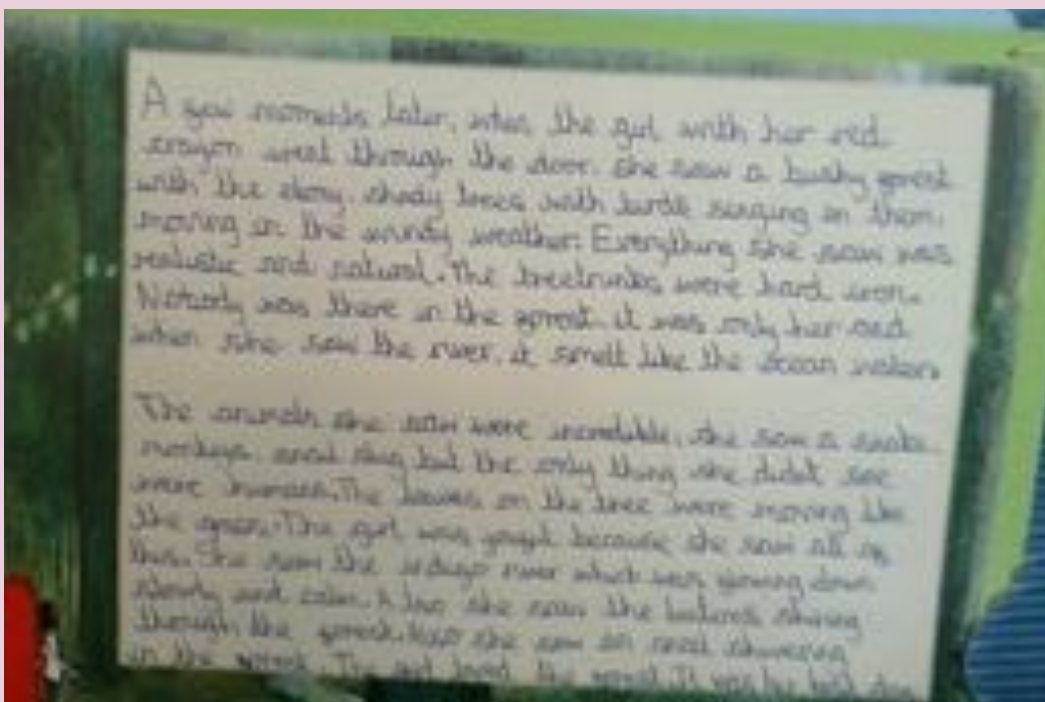 A few moments later, when the girl with her red
crayon went through the door. she saw a bushy forest
with the shady trees with birds singing on them,
moving in the windy weather. Everything she saw was
realistic and natural. The treetrunks were hard iron.
Nobody was there in the forest it was only her and
when she saw the river, it smelt like the ocean water.
The animals she saw were incredible, she saw a snake
monkeys, snail slug but the only thing she didn't see
were humans. The leaves on the tree were moving like
the The girl was because she saw all of
this. She saw the river which was flowing down
slowly and calm. she saw the shining
through the forest. she saw an shivering
in the forest. The girl loved the forest. It was her best day